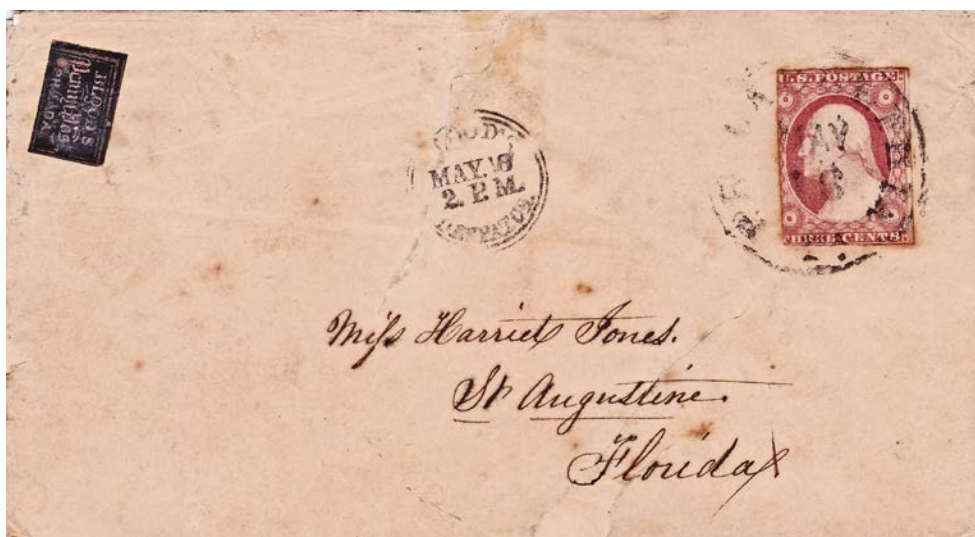 BLOOD'S
PHILAD'A
MAY. 18
2. P.M.
U.S. POSTAGE
THREE CENTS.
Miss Harriet Jones.
St Augustine.
Florida